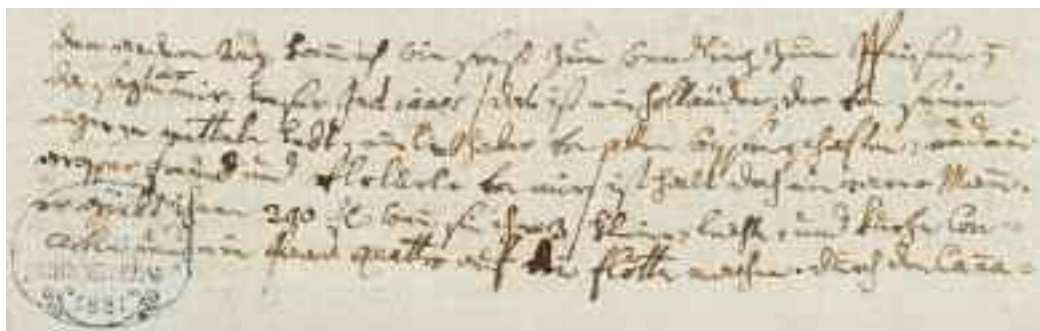 den andern tag kamm ich wie sonst zum wendling zum speisen;
da sagte er mir, unser Indianer | das ist ein holländer, der von seinen
eigenen mitteln lebt, ein liebhaber von allen wissenschaften, und ein
grosser freünd und von mir | ist halt doch ein rarer Mann.
er giebt ihnen 200 fl: wenn sie ihm 3 kleine, leichte, und kurze Con-
und ein Paar quattro auf die flötte machen. durch den Cana-